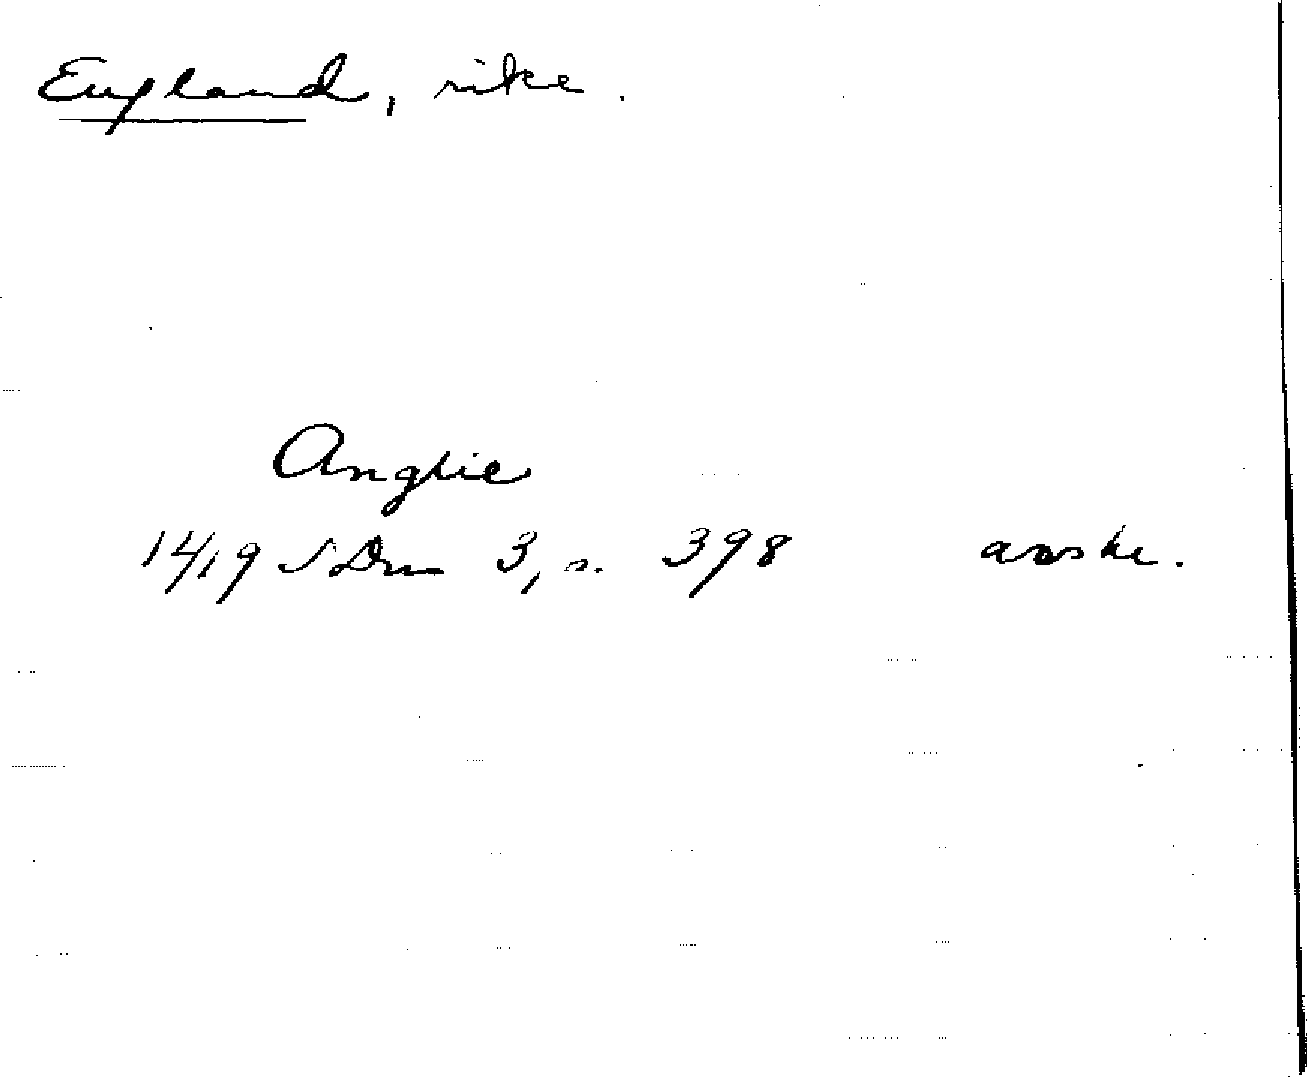 England, rike.
Anglie
1419 SDns 3, s. 398 avskr.